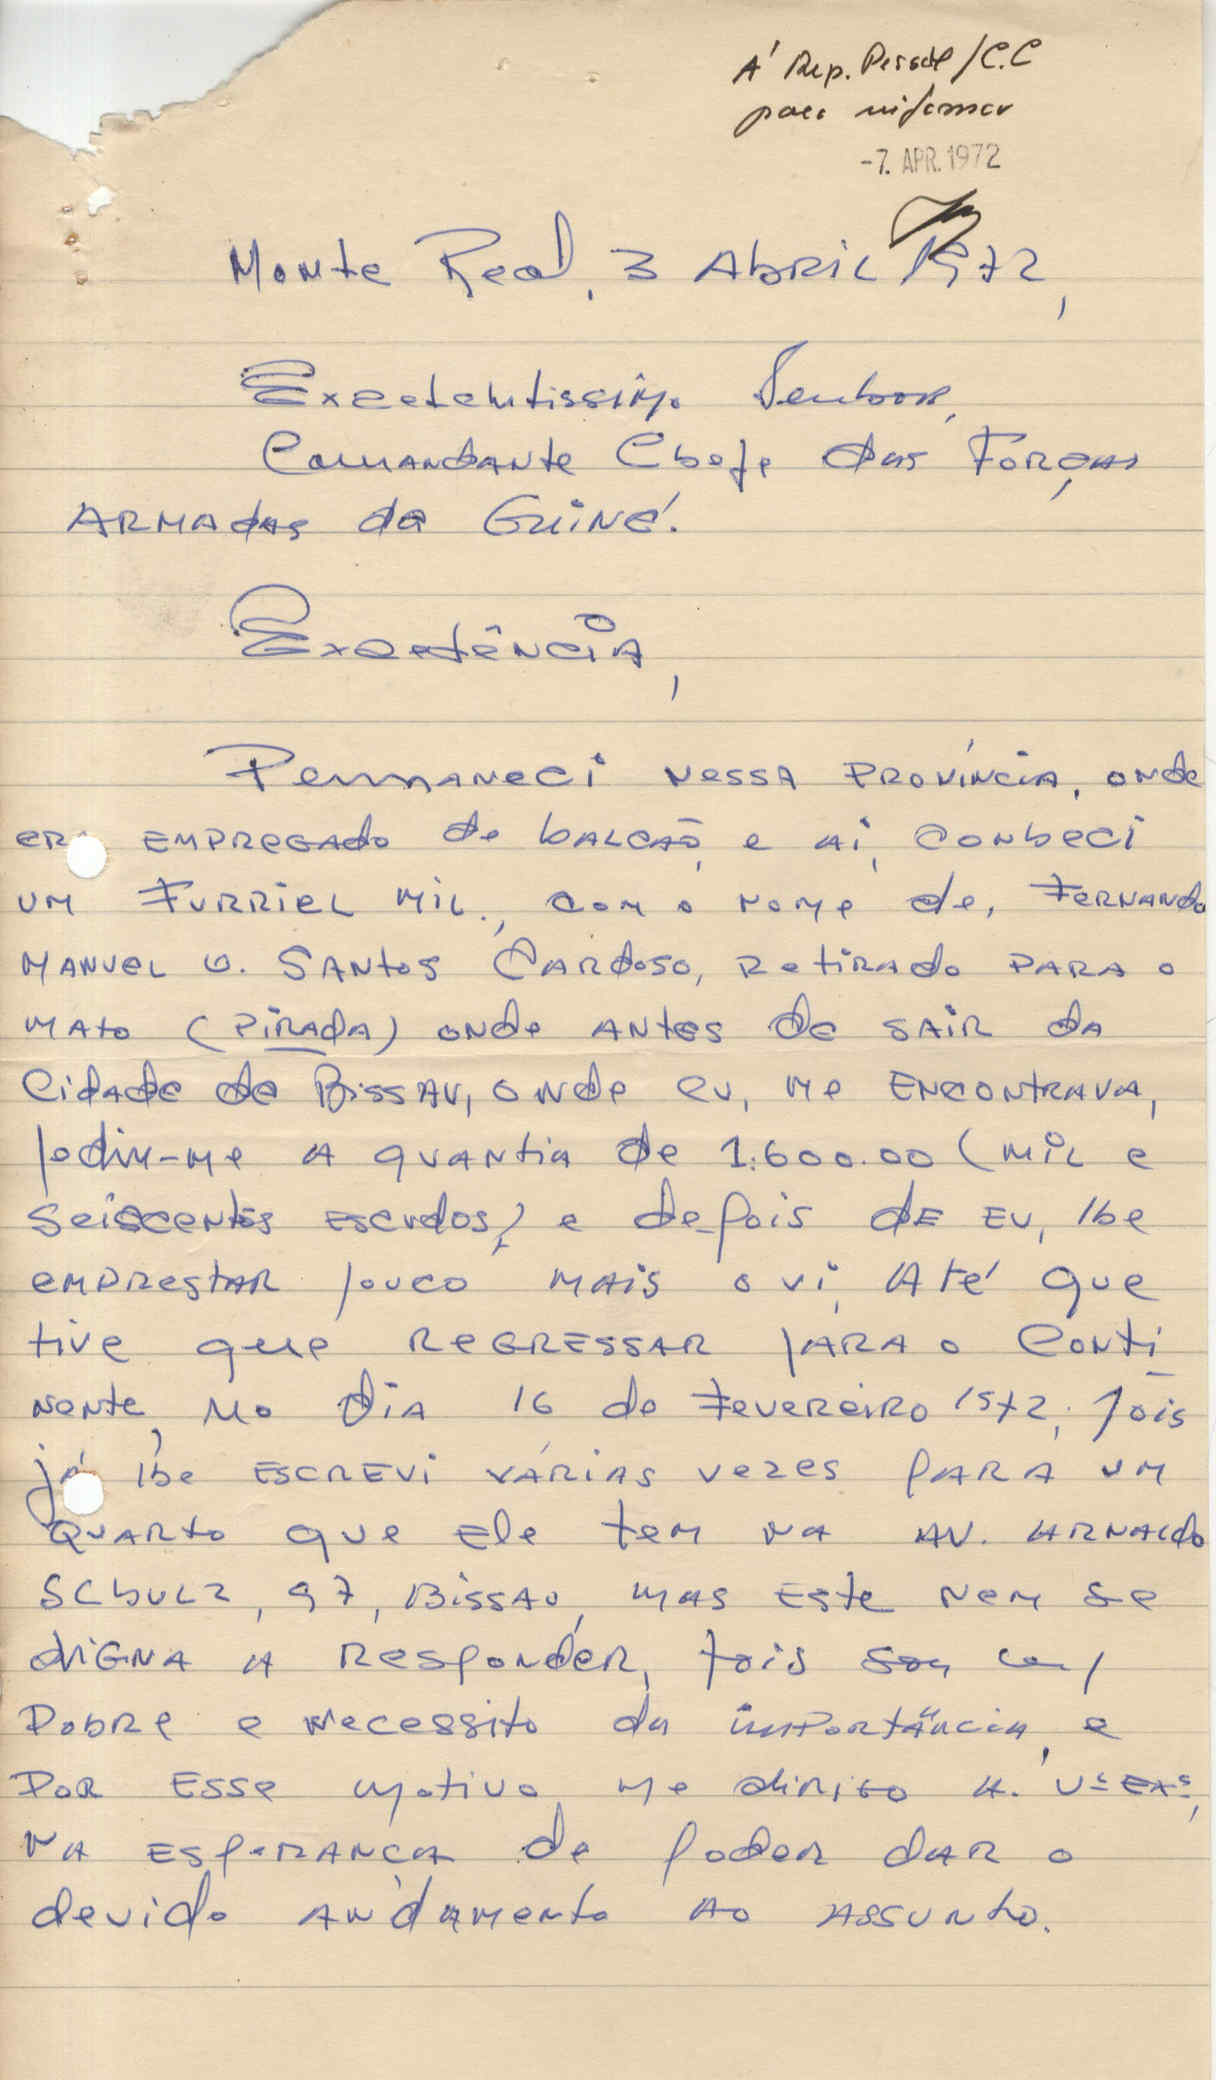 À Rep. Pessoal/C.C
para informar
-7. APR. 1972
Monte Real, 3 Abril 1972,
Excelentissimo Senhor,
Comandante Chefe das Forças
Armadas da Guiné.
Excelência,
Permaneci nessa Província, onde
era empregado de balcão, e aí, conheci
um Furriel Mil., com o nome de, Fernando
Manuel O. Santos Cardoso, retirado para o
mato (Pirada) onde antes de sair da
Cidade de Bissau, onde eu, me encontrava,
pediu-me a quantia de 1.600.00 (mil e
seiscentos escudos) e depois de eu, lhe
emprestar pouco mais o vi, até que
tive que regressar para o Conti
nente, no dia 16 de Fevereiro 1972, pois
já lhe escrevi várias vezes para um
quarto que ele tem na Av. Arnaldo
Schulz, 97, Bissau, mas este nem se
digna a responder, pois sou
pobre e necessito da importância, e
por esse motivo me dirijo a. Vª Exª,
na esperança de poder dar o
devido andamento ao assunto.